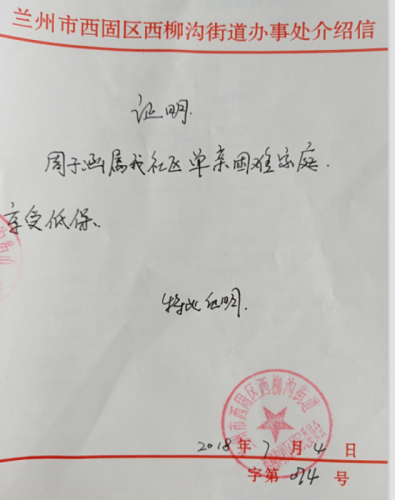 兰州市西固区西柳沟街道办事处介绍信
证明
周子涵属我社区单亲困难家庭.
享受低保.
特此证明.
兰州市西固区西柳沟街道
2018年7月4日
字第 号